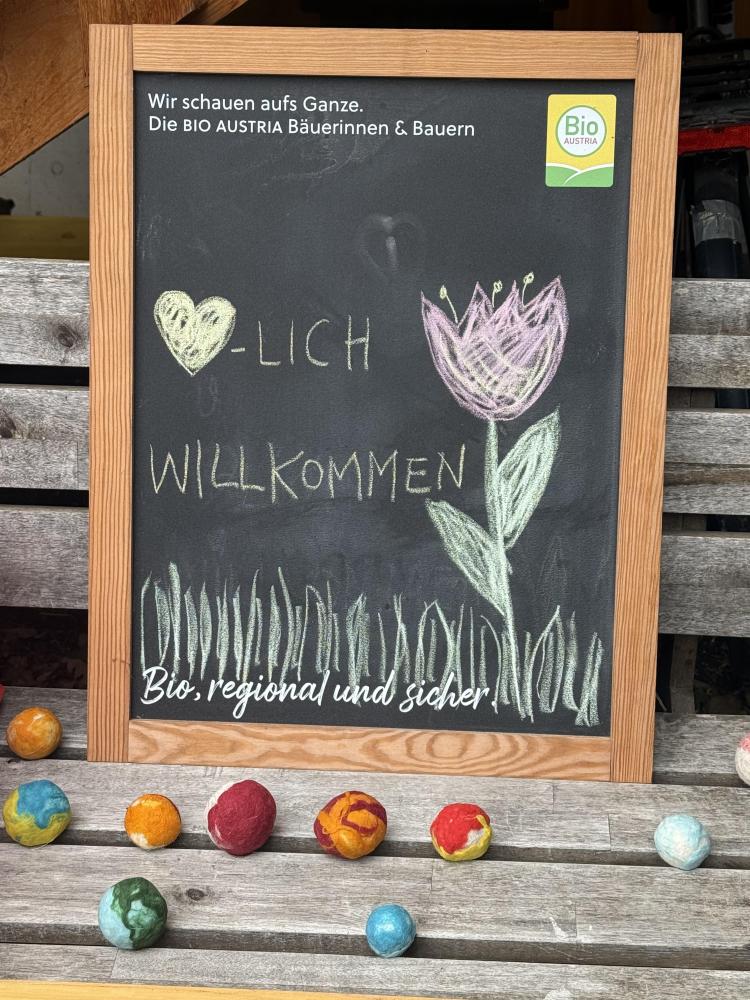 Wir schauen aufs Ganze.
Die BIO AUSTRIA Bäuerinnen & Bauern
Bio
AUSTRIA
-LICH
WILLKOMMEN
Bio, regional und sicher.